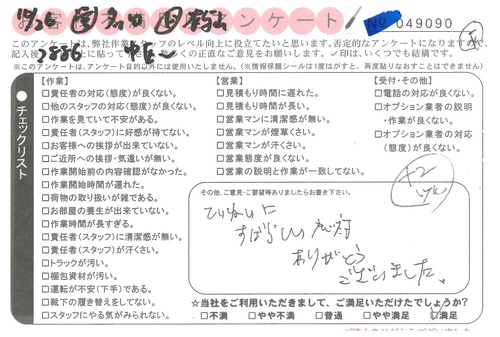 アンケート
No 049090
このアンケートは、弊社作業スタッフのレベル向上に役立てたいと思います。否定的なアンケートになりますが
※このアンケートは、アンケート目的以外には使用いたしません。(※情報保護シールは1度はがすと、再度貼りなおすことはできません)
チェックリスト
【作業】
□責任者の対応(態度)が良くない。
□他のスタッフの対応(態度)が良くない。
□作業を見ていて不安がある。
□責任者(スタッフ)に好感が持てない。
□お客様への挨拶が出来ていない。
□ご近所への挨拶・気遣いが無い。
□作業開始前の内容確認がなかった。
□作業開始時間が遅れた。
□荷物の取り扱いが雑である。
□お部屋の養生が出来ていない。
□作業時間が長すぎる。
□責任者(スタッフ)に清潔感が無い。
□責任者(スタッフ)が汗くさい。
□トラックが汚い。
□梱包資材が汚い。
□運転が不安(下手)である。
□靴下の履き替えをしてない。
□スタッフにやる気がみられない。
【営業】
□見積もり時間に遅れた。
□見積もり時間が長い。
□営業マンに清潔感が無い。
□営業マンが煙草くさい。
□営業マンが汗くさい。
□営業態度が良くない。
□営業の説明と作業が一致してない。
【受付・その他】
□電話の対応が良くない。
□オプション業者の説明
・作業が良くない。
□オプション業者の対応
(態度)が良くない。
その他、ご意見・ご要望等ありましたらお書き下さい。
ていねいに
すばらしい応対
ありがとう
ございました。
☆当社をご利用いただきまして、ご満足いただけたでしょうか?
□不満 □やや不満 □普通 □やや満足 □満足